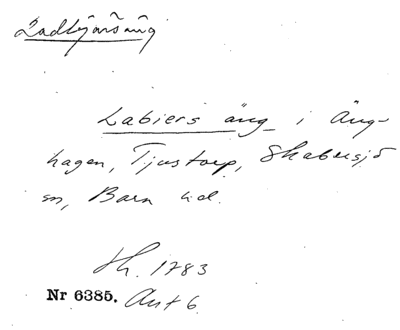 Ladbjörsäng
Labiers äng i Äng-
hagen, Tjustorp, Skabersjö
sn, Bara hd.
Sk. 1783
Nr 6385. Akt 6